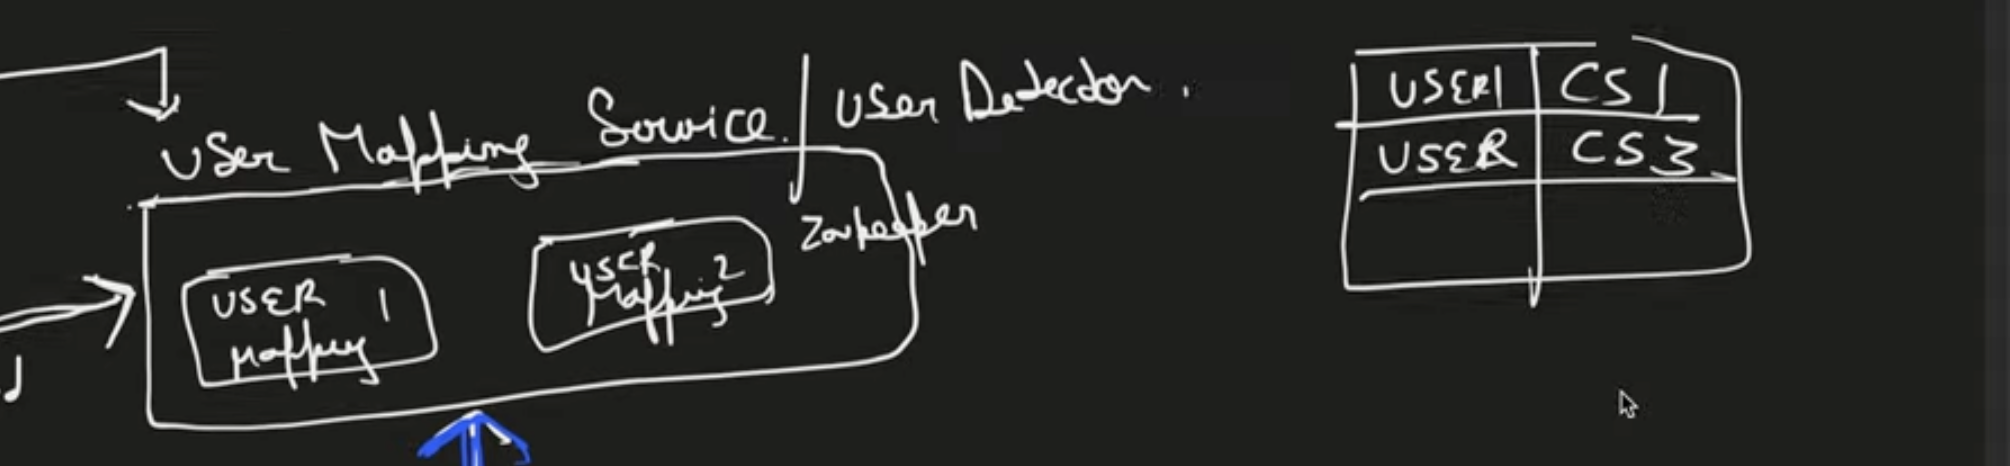 User Mapping Service. / User Detector.
Zookeeper
USER 1
Mapping
USER
Mapping 2
USER1 CS1
USER CS3